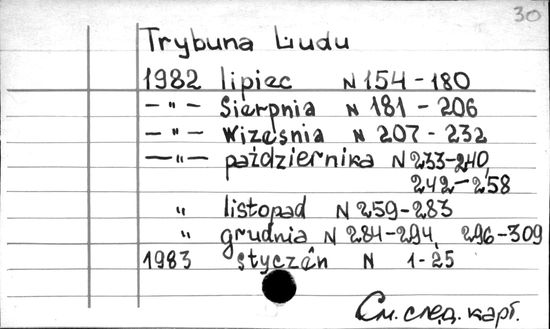 30
Trybuna Ludu
1982 lipiec N 154-180
— " — Sierpnia N 181 - 206
— " — WizeSnia N 207 - 232
— " — października N 233-240,
242-258
" listopad N 259-283
" grudnia N 284-294, 296-309
1983 styczên N 1-25
См. след. карт.